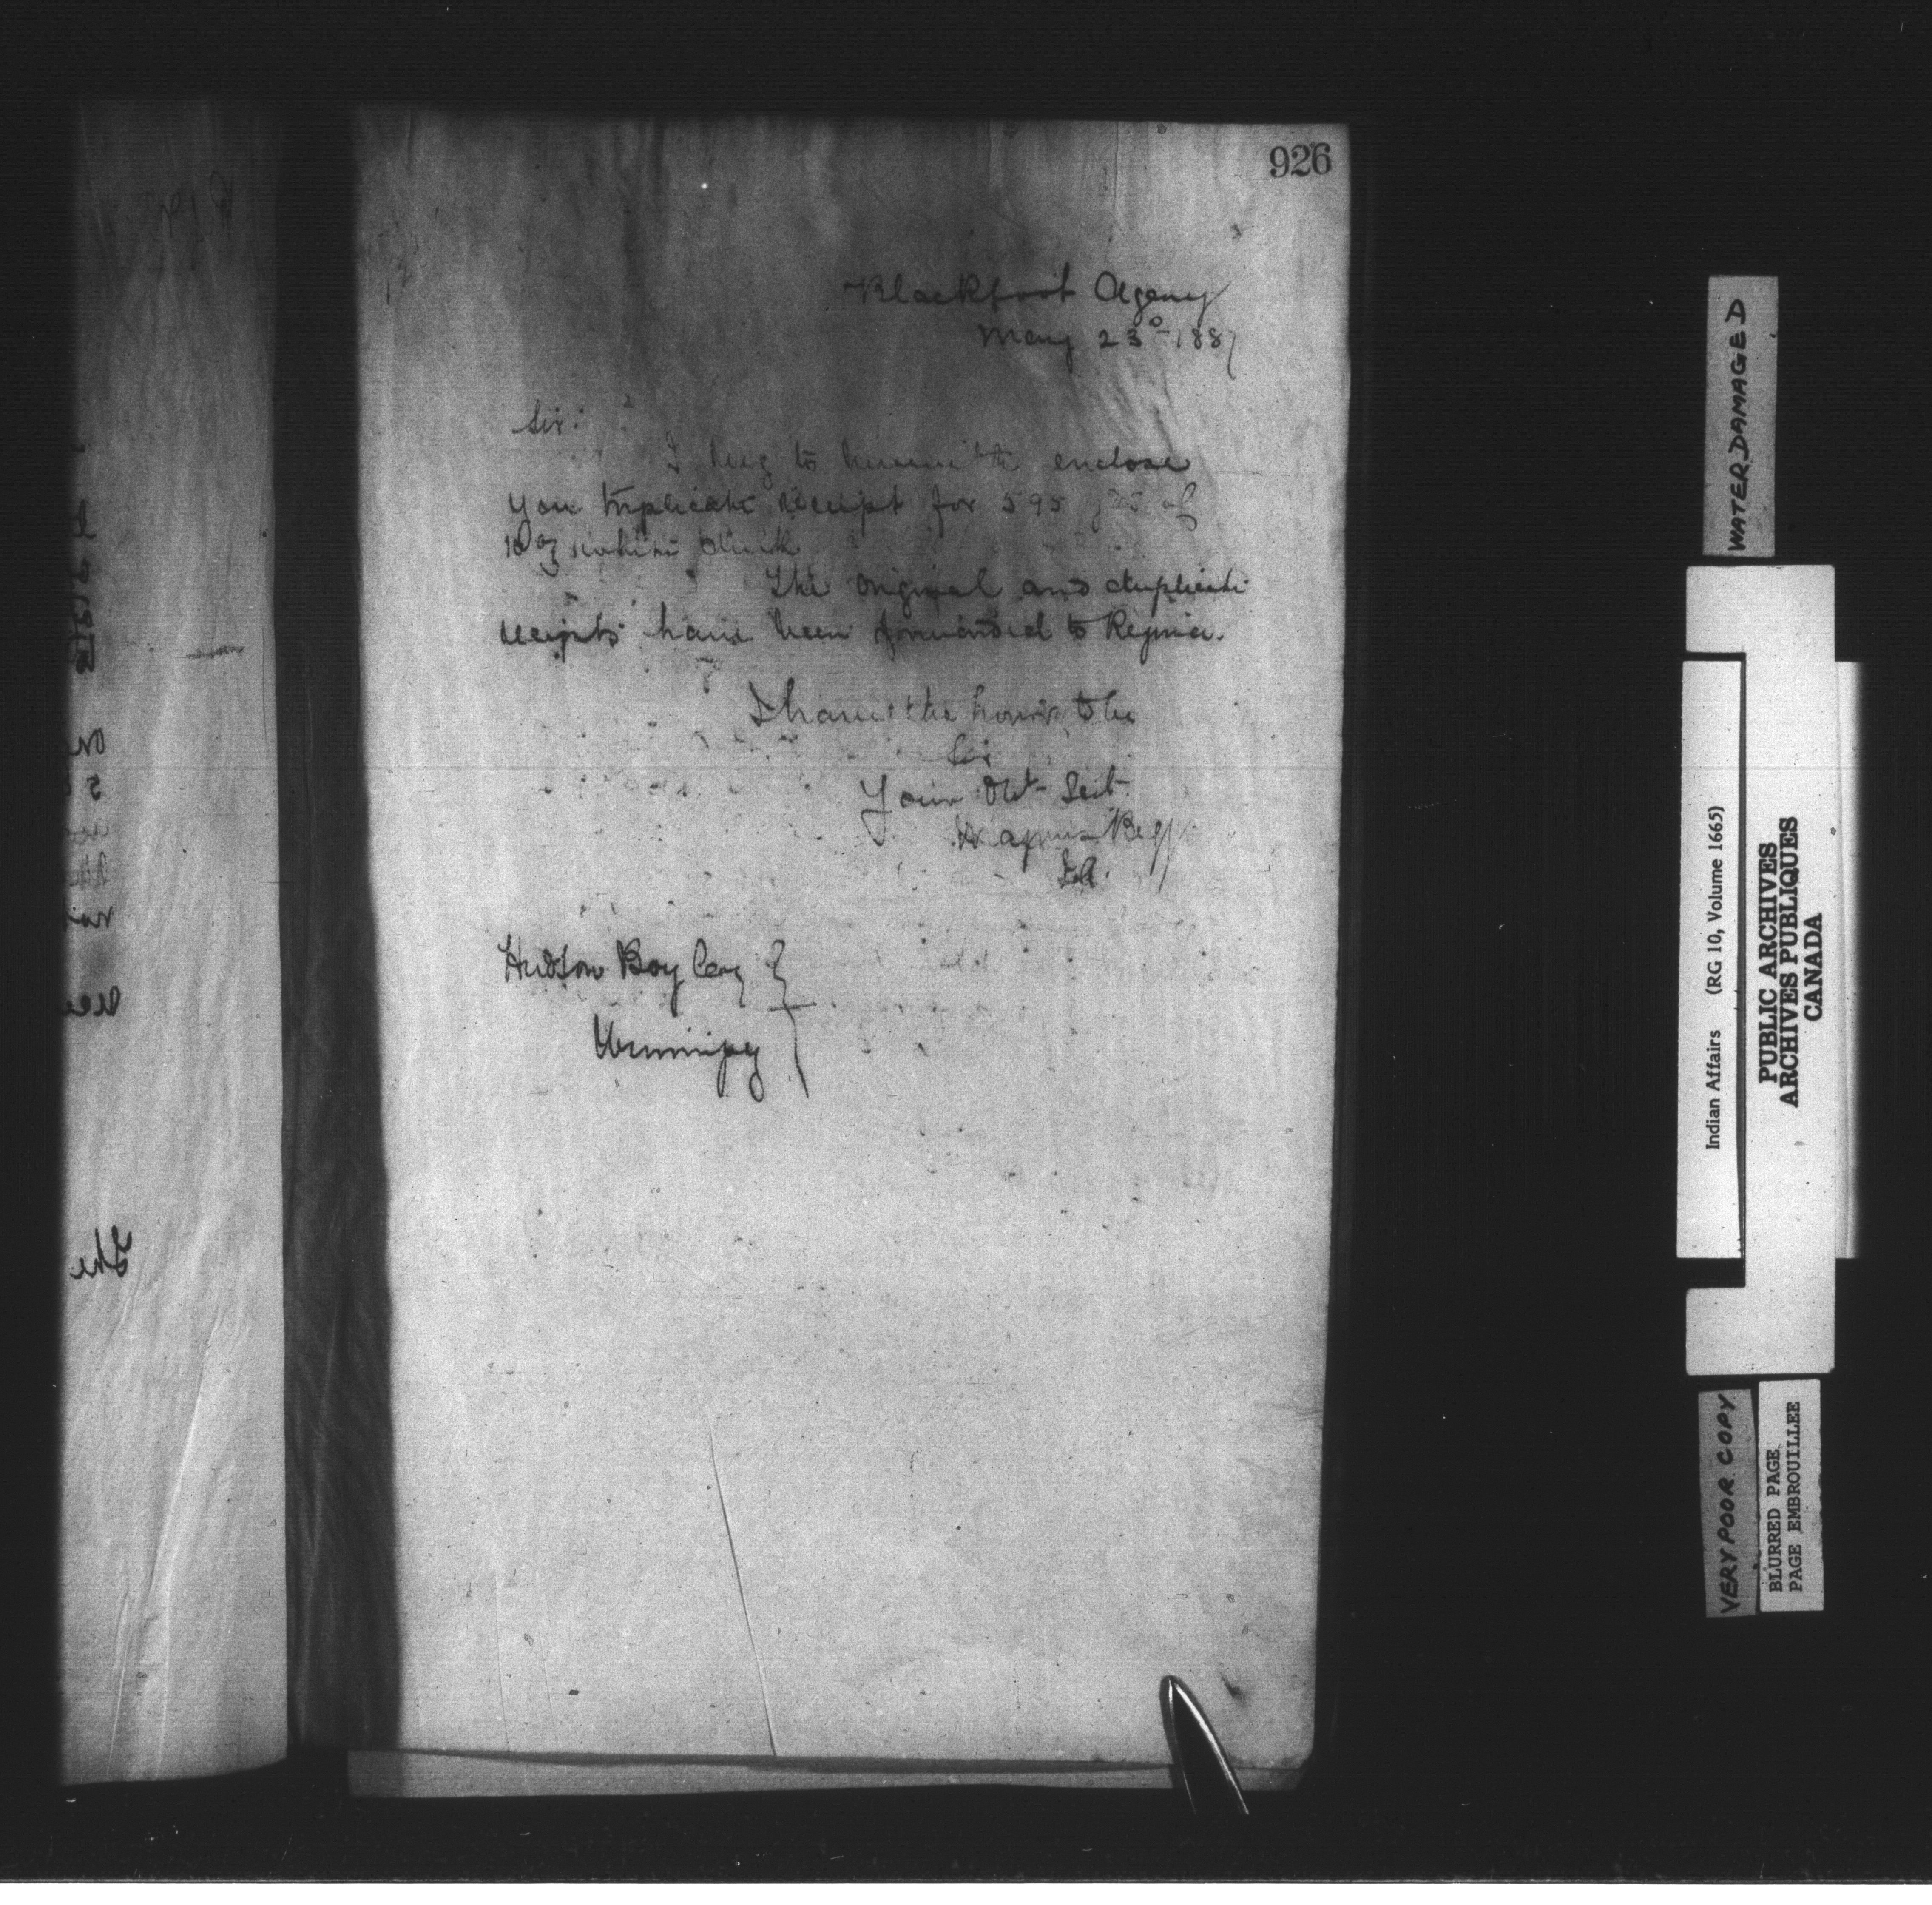 926
Blackfoot Agency
May 23d 1887
Sir:
I beg to herewith enclose
you triplicate receipt for 595 yds of
10 oz white duck
The original and duplicate
receipts have been forwarded to Regina.
I have the honor to be
Sir
Your Obt Servt
Magnus Begg
I.A.
Hudson Bay Coy
Winnipeg
The
WATER DAMAGED
Indian Affairs (RG 10, Volume 1665)
PUBLIC ARCHIVES
ARCHIVES PUBLIQUES
CANADA
VERY POOR COPY
BLURRED PAGE
PAGE EMBROUILLEE